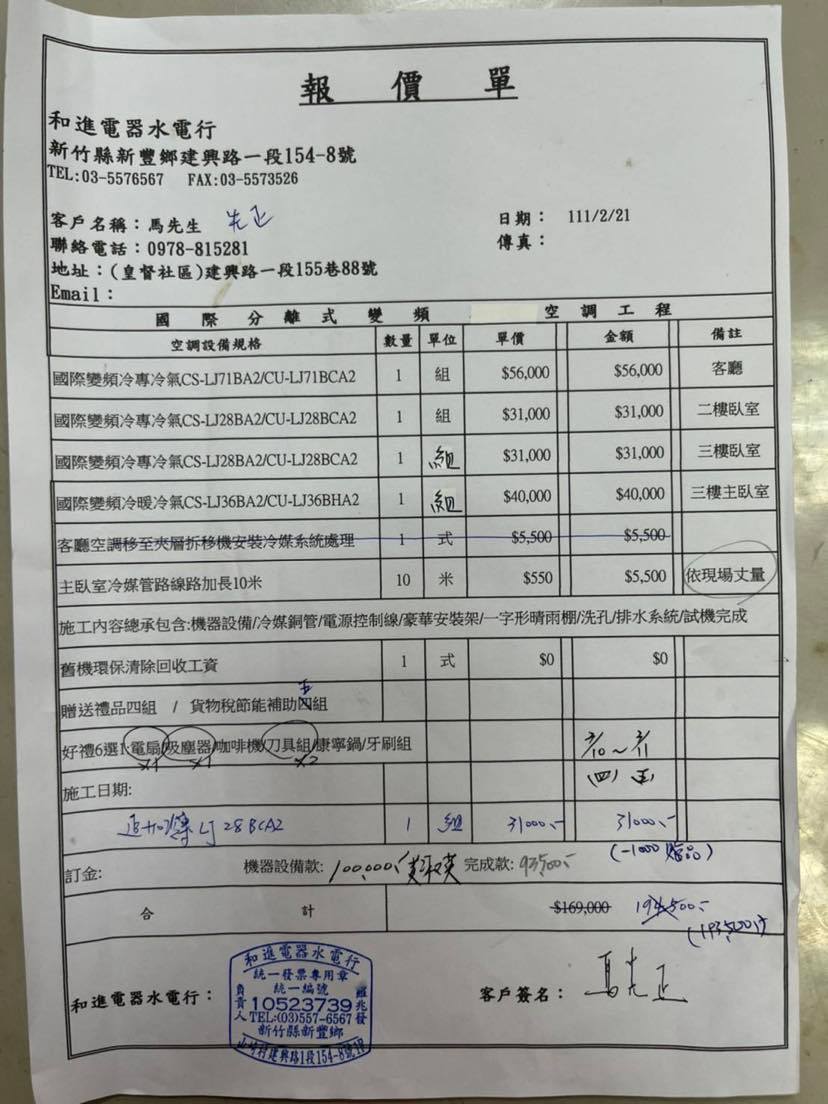 報價單
和進電器水電行
新竹縣新豐鄉建興路一段154-8號
TEL:03-5576567 FAX:03-5573526
客戶名稱：馬先生 先正
日期： 111/2/21
聯絡電話：0978-815281
傳真：
地址：(皇督社區)建興路一段155巷88號
Email：
國際分離式變頻 空調工程
空調設備規格 數量 單位 單價 金額 備註
國際變頻冷專冷氣CS-LJ71BA2/CU-LJ71BCA2 1 組 $56,000 $56,000 客廳
國際變頻冷專冷氣CS-LJ28BA2/CU-LJ28BCA2 1 組 $31,000 $31,000 二樓臥室
國際變頻冷專冷氣CS-LJ28BA2/CU-LJ28BCA2 1 組 $31,000 $31,000 三樓臥室
國際變頻冷暖冷氣CS-LJ36BA2/CU-LJ36BHA2 1 組 $40,000 $40,000 三樓主臥室
客廳空調移至夾層折移機安裝冷媒系統處理 1 式 $5,500 $5,500
主臥室冷媒管路線路加長10米 10 米 $550 $5,500 依現場丈量
施工內容總承包含:機器設備/冷媒銅管/電源控制線/豪華安裝架/一字形晴雨棚/洗孔/排水系統/試機完成
舊機環保清除回收工資 1 式 $0 $0
五
贈送禮品四組 / 貨物稅節能補助四組
好禮6選1:電扇/吸塵器/咖啡機/刀具組/康寧鍋/牙刷組
x1 x1 x2
3/10~3/11
(四) 五
施工日期:
追加 LJ28BCA2 1 組 31000.- 31000.-
(-1000 贈品)
訂金: 機器設備款: 100,000.- 完成款: 93500.-
合計 $169,000 194,500.-
(193,500)
和進電器水電行：
和進電器水電行
統一發票專用章
統一編號
10523739
負責人
TEL:(03)557-6567
新竹縣新豐鄉
山崎村建興路1段154-8號1F
客戶簽名： 馬先正